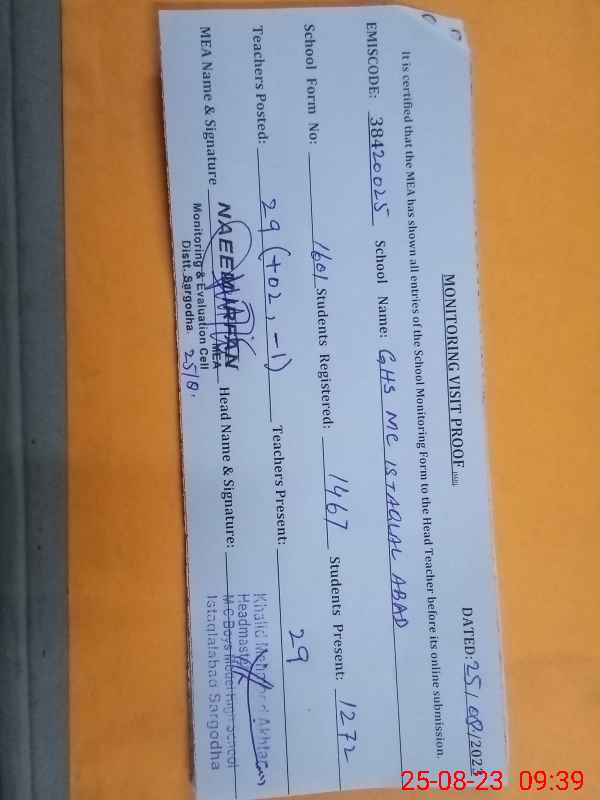 MONITORING VISIT PROOF
DATED: 25/08/2023
It is certified that the MEA has shown all entries of the School Monitoring Form to the Head Teacher before its online submission.
EMISCODE: 38420025 School Name: GHS MC ISTAQLAL ABAD
School Form No: 1601 Students Registered: 1467 Students Present: 1272
Teachers Posted: 29 (+02, -1) Teachers Present: 29
MEA Name & Signature NAEEM IRFAN Head Name & Signature:
MEA
Monitoring & Evaluation Cell
Distt. Sargodha.
25/8.
Khalid Akhtar
Headmaster
M.C Boys Model High School
Istaqlalabad Sargodha
25-08-23 09:39